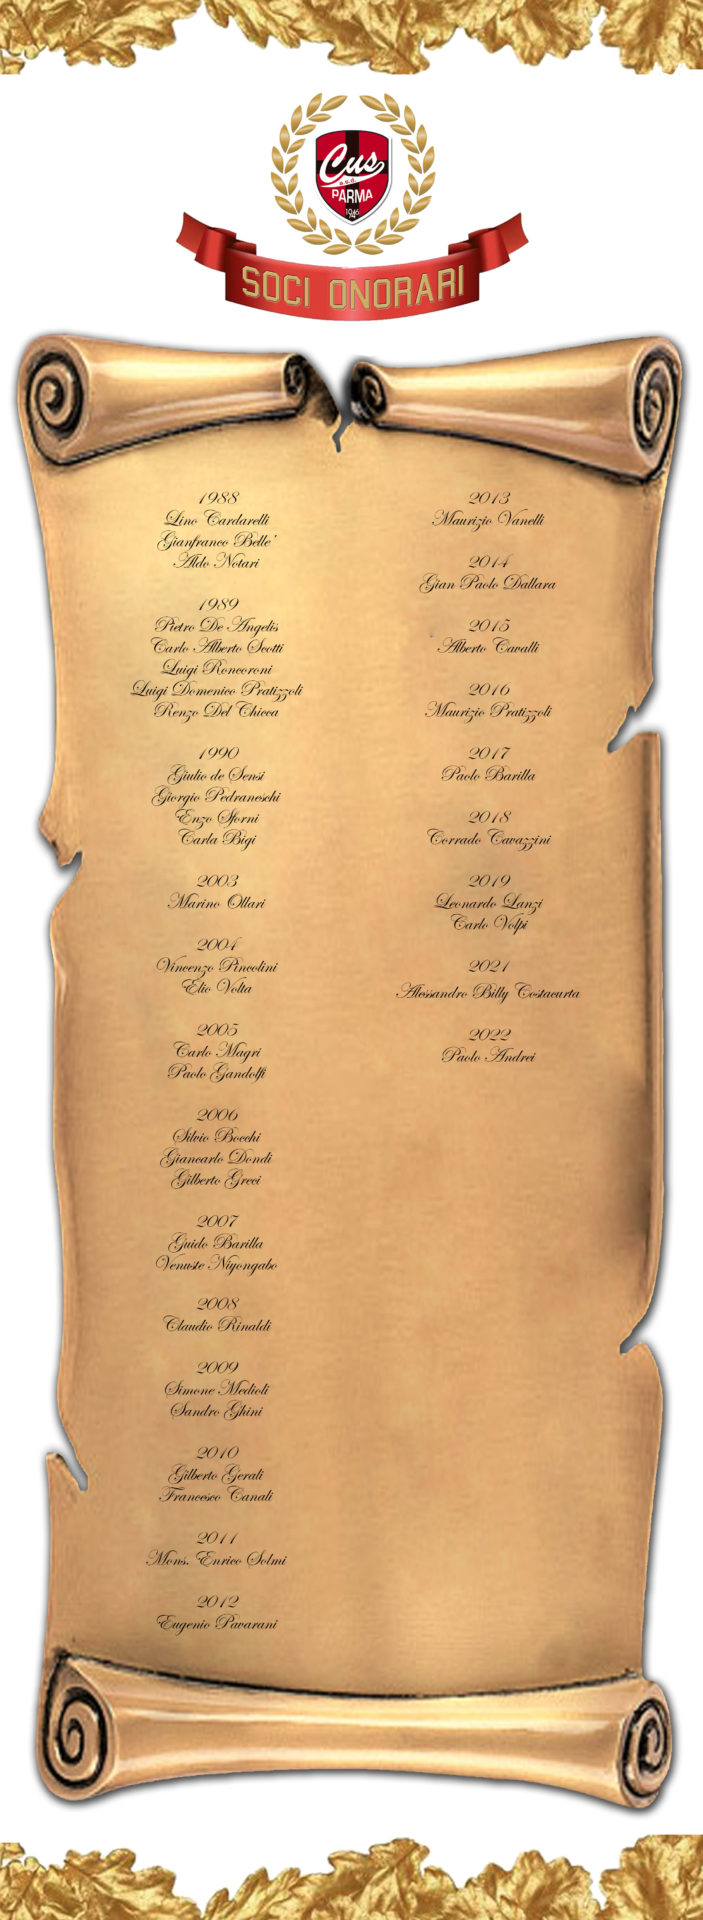 Cus
a.s.d.
PARMA
1946
SOCI ONORARI
1988
Lino Cardarelli
Gianfranco Belle'
Aldo Notari
1989
Pietro De Angelis
Carlo Alberto Scotti
Luigi Roncoroni
Luigi Domenico Pratizzoli
Renzo Del Chicca
1990
Giulio de Sensi
Giorgio Pedraneschi
Enzo Sforni
Carla Bigi
2003
Marino Ollari
2004
Vincenzo Pincolini
Elio Volta
2005
Carlo Magri
Paolo Gandolfi
2006
Silvio Bocchi
Giancarlo Dondi
Gilberto Greci
2007
Guido Barilla
Venuste Niyongabo
2008
Claudio Rinaldi
2009
Simone Medioli
Sandro Ghini
2010
Gilberto Gerali
Francesco Canali
2011
Mons. Enrico Solmi
2012
Eugenio Pavarani
2013
Maurizio Vanelli
2014
Gian Paolo Dallara
2015
Alberto Cavalli
2016
Maurizio Pratizzoli
2017
Paolo Barilla
2018
Corrado Cavazzini
2019
Leonardo Lanzi
Carlo Volpi
2021
Alessandro Billy Costacurta
2022
Paolo Andrei